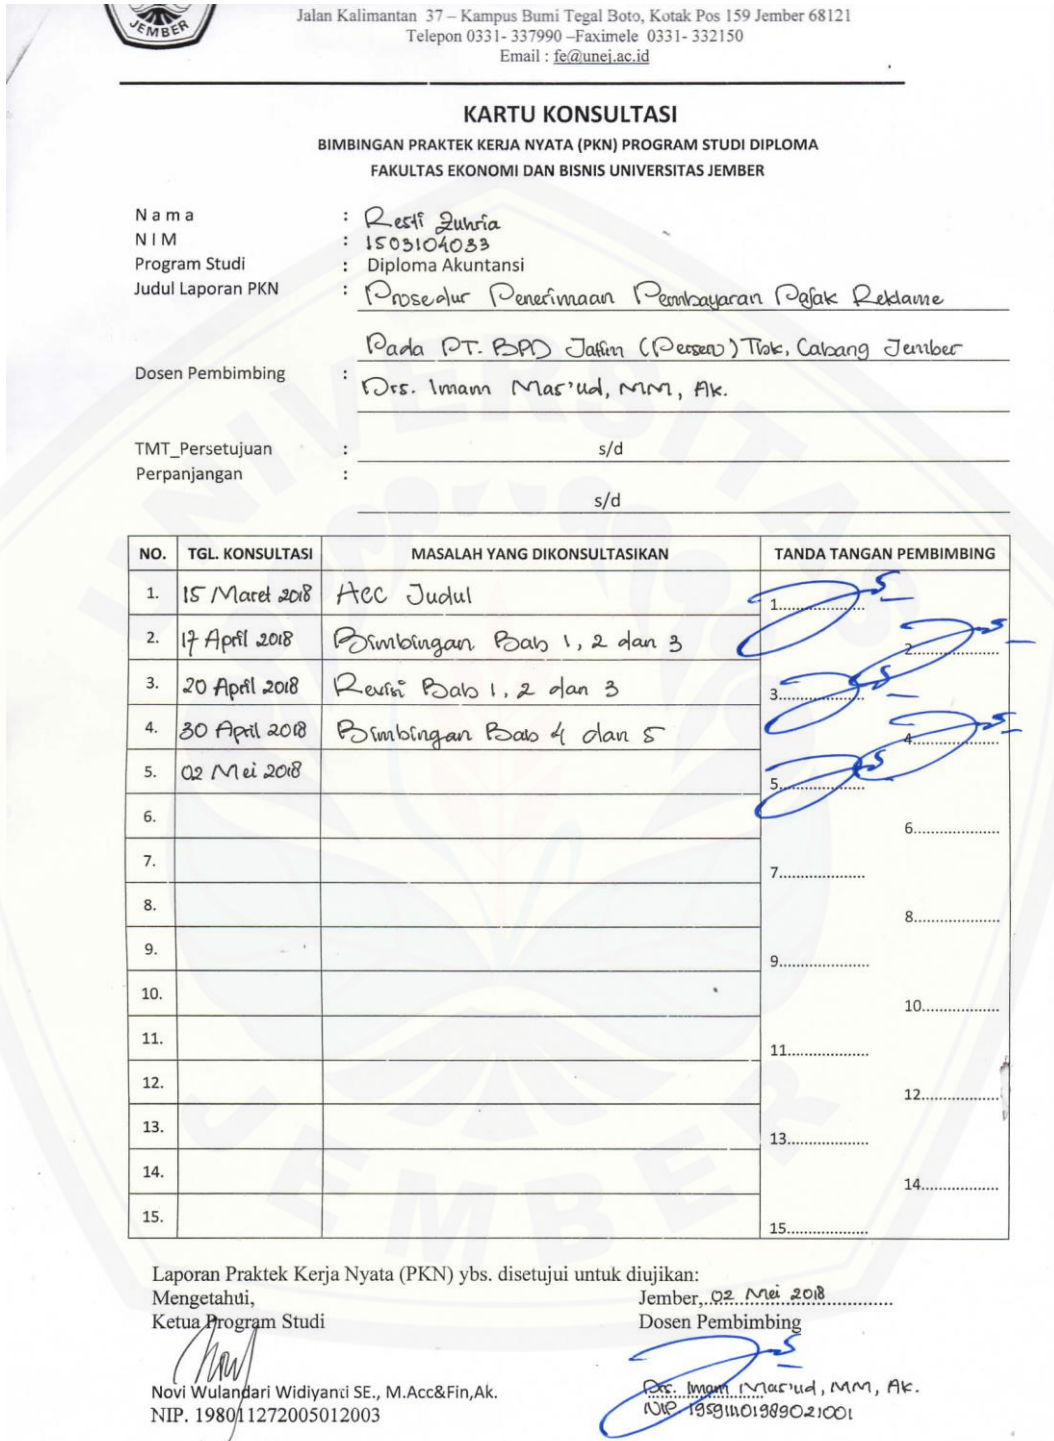 JEMBER
Jalan Kalimantan 37 – Kampus Bumi Tegal Boto, Kotak Pos 159 Jember 68121
Telepon 0331- 337990 –Faximele 0331- 332150
Email : fe@unej.ac.id
KARTU KONSULTASI
BIMBINGAN PRAKTEK KERJA NYATA (PKN) PROGRAM STUDI DIPLOMA
FAKULTAS EKONOMI DAN BISNIS UNIVERSITAS JEMBER
N a m a : Resti Zuhria
N I M : 1503104033
Program Studi : Diploma Akuntansi
Judul Laporan PKN : Prosedur Penerimaan Pembayaran Pajak Reklame
Pada PT. BPD Jatim (Persero) Tbk, Cabang Jember
Dosen Pembimbing : Drs. Imam Mas'ud, MM, Ak.
TMT_Persetujuan : s/d
Perpanjangan :
s/d
NO. TGL. KONSULTASI MASALAH YANG DIKONSULTASIKAN TANDA TANGAN PEMBIMBING
1. 15 Maret 2018 Acc Judul 1..................
2. 17 April 2018 Bimbingan Bab 1, 2 dan 3 2..................
3. 20 April 2018 Revisi Bab 1, 2 dan 3 3..................
4. 30 April 2018 Bimbingan Bab 4 dan 5 4..................
5. 02 Mei 2018 5..................
6. 6..................
7. 7..................
8. 8..................
9. 9..................
10. 10..................
11. 11..................
12. 12..................
13. 13..................
14. 14..................
15. 15..................
Laporan Praktek Kerja Nyata (PKN) ybs. disetujui untuk diujikan:
Mengetahui, Jember, 02 Mei 2018
Ketua Program Studi Dosen Pembimbing
Novi Wulandari Widiyanti SE., M.Acc&Fin,Ak. Drs. Imam Mas'ud, MM, Ak.
NIP. 198011272005012003 NIP. 195911101989021001
UNIVERSITAS JEMBER